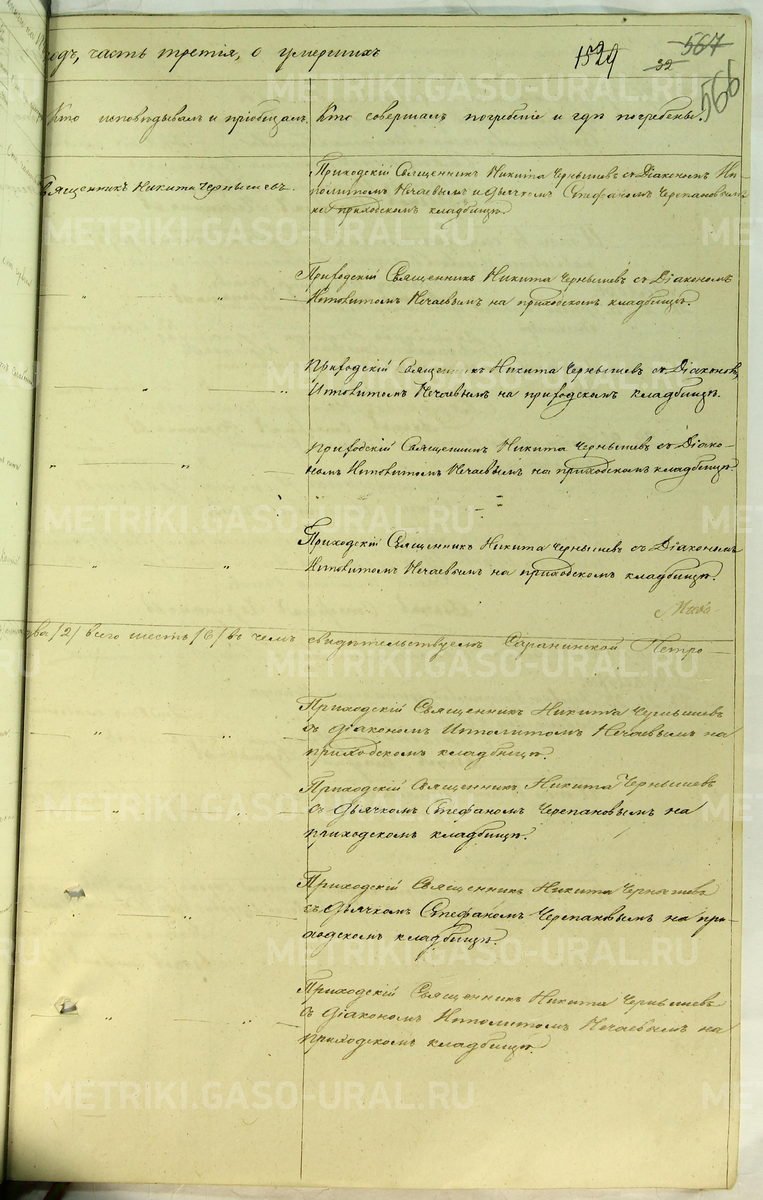 годъ, часть третія, о умершихъ
1529
32
567
566
Кто исповѣдывалъ и пріобщалъ.
Кто совершалъ погребеніе и гдѣ погребены.
Священникъ Никита Чернышевъ.
Приходскій Священникъ Никита Чернышевъ съ Діакономъ Ип-
политомъ Нечаевымъ и дьячкомъ Стефаномъ Черепановымъ
на приходскомъ кладбищѣ.
Приходскій Священникъ Никита Чернышевъ съ Діакономъ
Ипполитомъ Нечаевымъ на приходскомъ кладбищѣ.
Приходскій Священникъ Никита Чернышевъ съ Діакономъ
Ипполитомъ Нечаевымъ на приходскомъ кладбищѣ.
Приходскій Священникъ Никита Чернышевъ съ Діако-
номъ Ипполитомъ Нечаевымъ на приходскомъ кладбищѣ.
Приходскій Священникъ Никита Чернышевъ съ Діакономъ
Ипполитомъ Нечаевымъ на приходскомъ кладбищѣ.
два /2/ всего шесть /6/ въ чемъ свидѣтельствуемъ Саранинской Петро-
Приходскій Священникъ Никита Чернышевъ
съ Діакономъ Ипполитомъ Нечаевымъ на
приходскомъ кладбищѣ.
Приходскій Священникъ Никита Чернышевъ
съ Дьячкомъ Стефаномъ Черепановымъ на
приходскомъ кладбищѣ.
Приходскій Священникъ Никита Чернышевъ
съ Дьячкомъ Стефаномъ Черепановымъ на при-
ходскомъ кладбищѣ.
Приходскій Священникъ Никита Чернышевъ
съ Діакономъ Ипполитомъ Нечаевымъ на
приходскомъ кладбищѣ.
METRIKI.GASO-URAL.RU